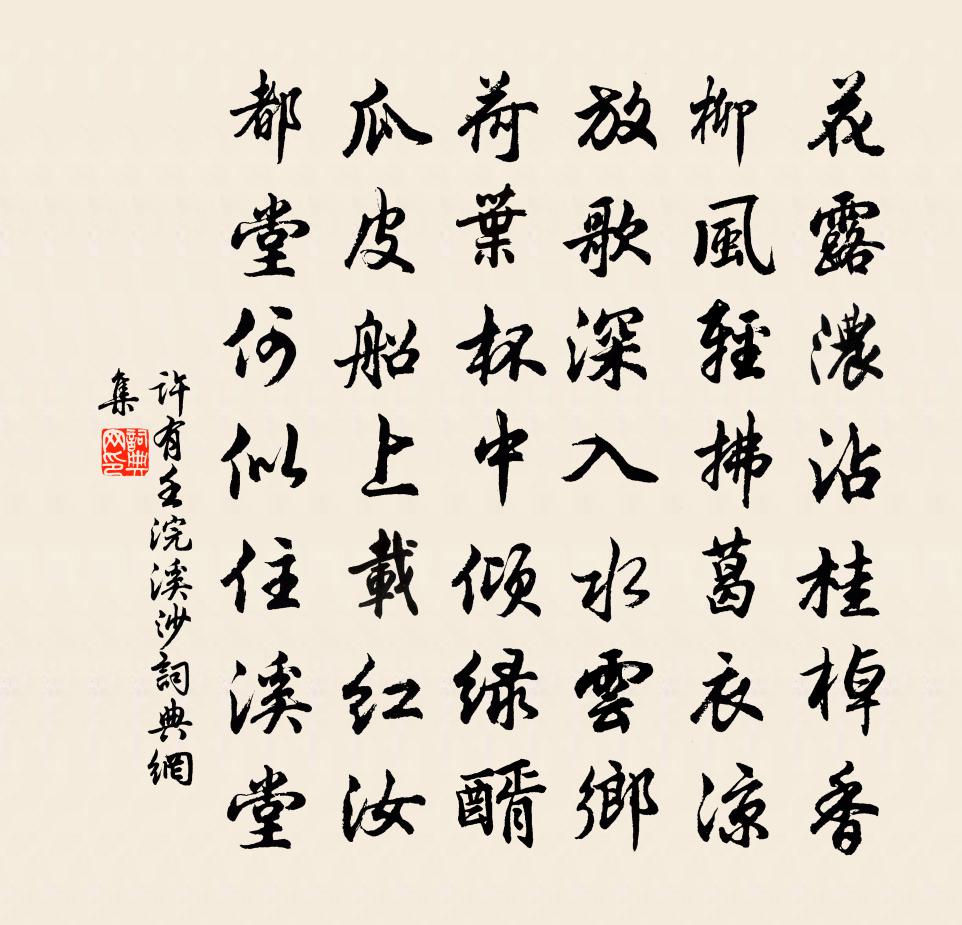 花露濃沾桂棹香
柳風輕拂葛衣涼
放歌深入水雲鄉
荷葉杯中傾绿醑
瓜皮船上載红汝
都堂何似住溪堂
許有壬浣溪沙詞典網
集
詞典
网印